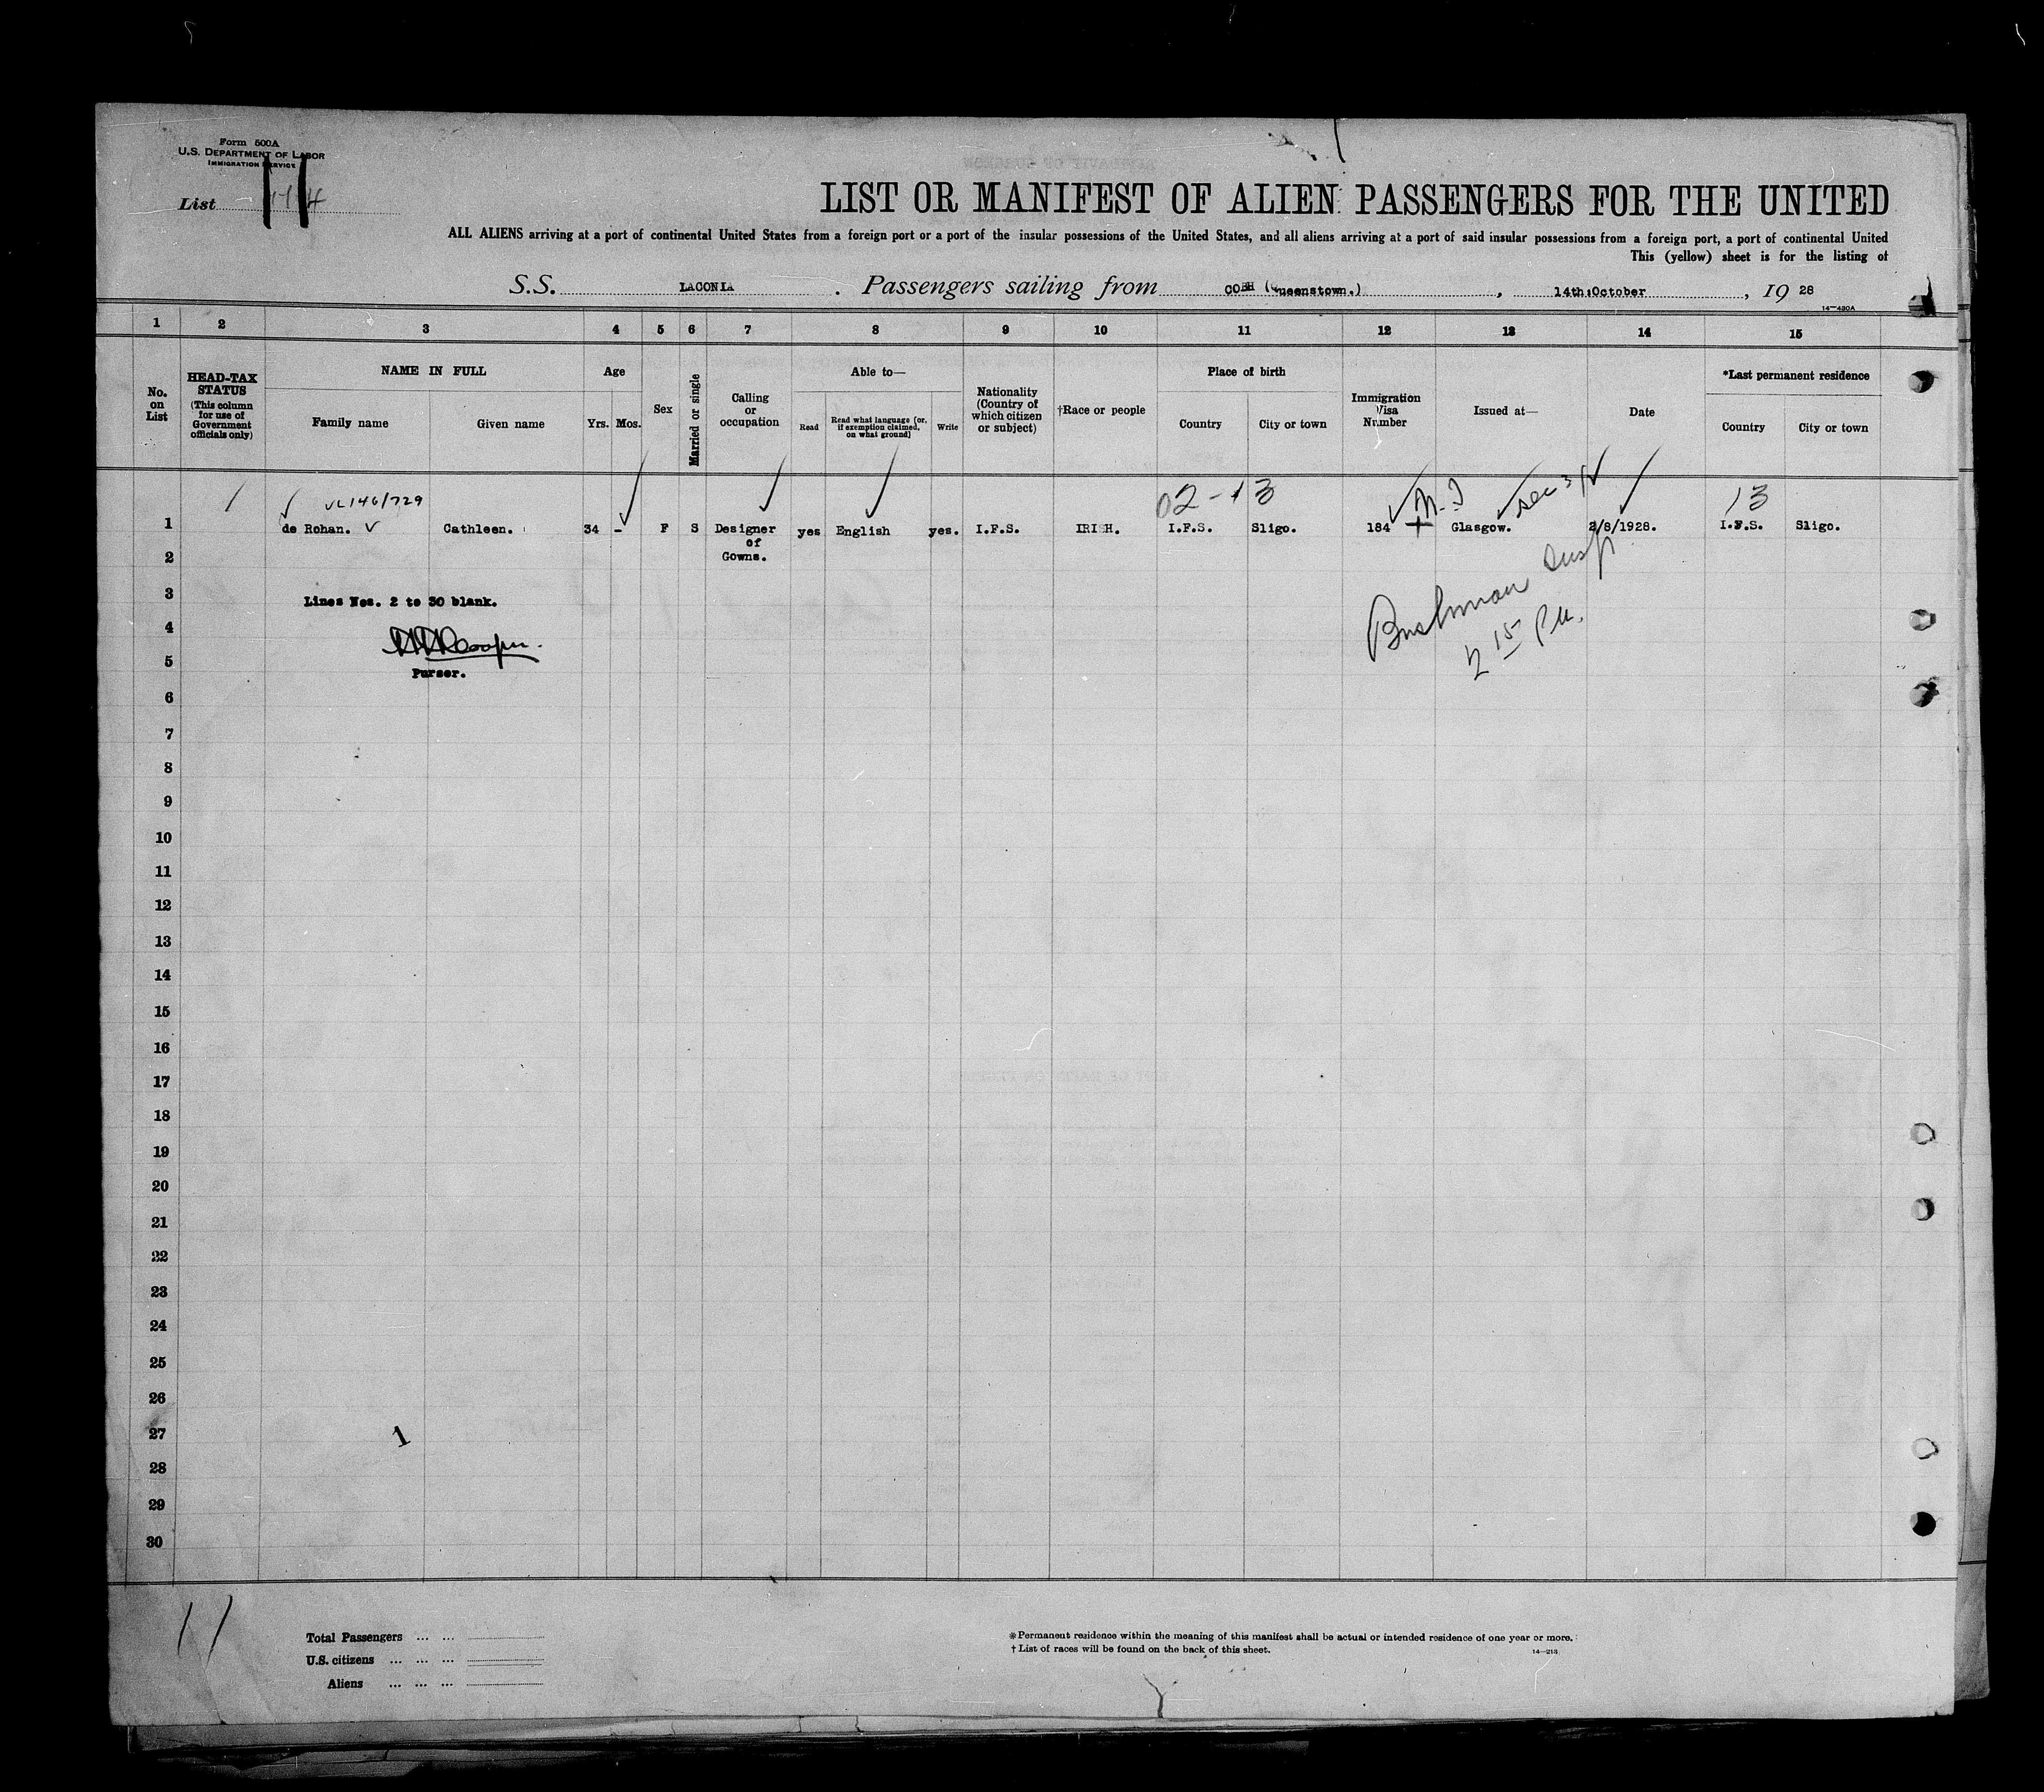 Form 500A
U.S. DEPARTMENT OF LABOR
IMMIGRATION SERVICE
List
LIST OR MANIFEST OF ALIEN PASSENGERS FOR THE UNITED
ALL ALIENS arriving at a port of continental United States from a foreign port or a port of the insular possessions of the United States, and all aliens arriving at a port of said insular possessions from a foreign port, a port of continental United
This (yellow) sheet is for the listing of
S.S. LACONIA. Passengers sailing from COBH (Queenstown.), 14th:October, 19 28
14—480A
1 2 3 4 5 6 7 8 9 10 11 12 13 14 15
No. on List
HEAD-TAX STATUS
(This column for use of Government officials only)
NAME IN FULL
Family name Given name
Age
Yrs. Mos.
Sex
Married or single
Calling or occupation
Able to—
Read
Read what language [or, if exemption claimed, on what ground]
Write
Nationality (Country of which citizen or subject)
†Race or people
Place of birth
Country City or town
Immigration Visa Number
Issued at—
Date
*Last permanent residence
Country City or town
VL146/729 02-13 13
1 de Rohan. Cathleen. 34 - F S Designer yes English yes. I.F.S. IRISH. I.F.S. Sligo. 184 Glasgow. 2/8/1928. I.F.S. Sligo.
of
Gowns.
2
3 Lines Nos. 2 to 30 blank.
Bushman Insp
4
2 15 P.M.
5
Purser.
6
7
8
9
10
11
12
13
14
15
16
17
18
19
20
21
22
23
24
25
26
27 1
28
29
30
11
Total Passengers ... ...
U.S. citizens ... ... ...
Aliens ... ... ...
*Permanent residence within the meaning of this manifest shall be actual or intended residence of one year or more.
†List of races will be found on the back of this sheet.
14—213